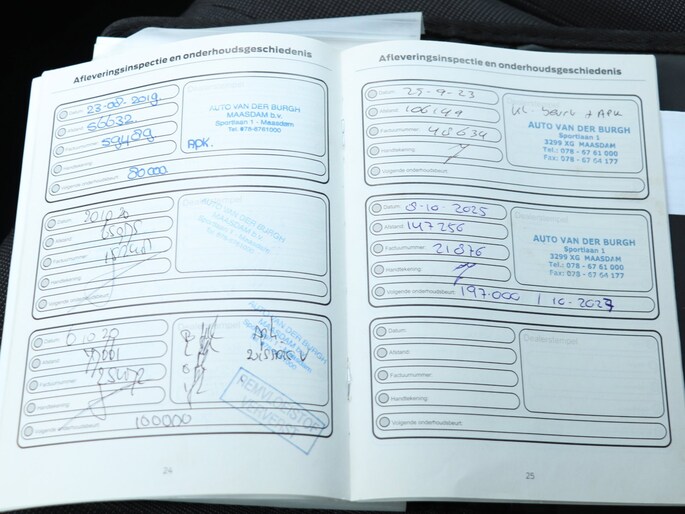 Afleveringsinspectie en onderhoudsgeschiedenis
Datum: 23-08-2019
Afstand: 56632
Factuurnummer: 59489
Handtekening:
Volgende onderhoudsbeurt: 80000
AUTO VAN DER BURGH
MAASDAM b.v.
Sportlaan 1 - Maasdam
Tel. 078-6761000
Apk.
Datum:
Afstand:
Factuurnummer:
Handtekening:
Volgende onderhoudsbeurt:
AUTO VAN DER BURGH
MAASDAM b.v.
Datum:
Afstand:
Factuurnummer:
Handtekening:
Volgende onderhoudsbeurt: 100000
AUTO VAN DER BURGH
MAASDAM b.v.
REMVLOEISTOF
VERVERST
24
Afleveringsinspectie en onderhoudsgeschiedenis
Datum: 25-9-23
Afstand: 106149
Factuurnummer: 48634
Handtekening:
Volgende onderhoudsbeurt:
kl. beurt + APK
AUTO VAN DER BURGH
Sportlaan 1
3299 XG MAASDAM
Tel.: 078 - 67 61 000
Fax: 078 - 67 64 177
Datum: 8-10-2025
Afstand: 147256
Factuurnummer: 21876
Handtekening:
Volgende onderhoudsbeurt: 197.000 / 10-2027
Dealerstempel
AUTO VAN DER BURGH
Sportlaan 1
3299 XG MAASDAM
Tel.: 078 - 67 61 000
Fax: 078 - 67 64 177
Datum:
Afstand:
Factuurnummer:
Handtekening:
Volgende onderhoudsbeurt:
Dealerstempel
25